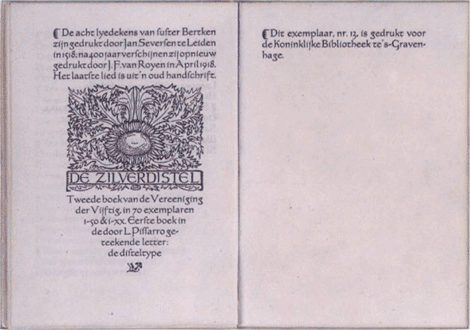 ⸿De acht lyedekens van suster Bertken
zijn gedrukt door Jan Seversen te Leiden
in 1518: na 400 jaar verschijnen zij opnieuw
gedrukt door J. F. van Royen in April 1918.
Het laatste lied is uit 'n oud handschrift.
DE ZILVERDISTEL
Tweede boek van de Vereeniging
der Vijftig, in 70 exemplaren
1-50 & i-xx. Eerste boek in
de door L. Pissarro ge-
teekende letter:
de disteltype
⸿Dit exemplaar, nr. 13, is gedrukt voor
de Koninklijke Bibliotheek te 's-Graven-
hage.